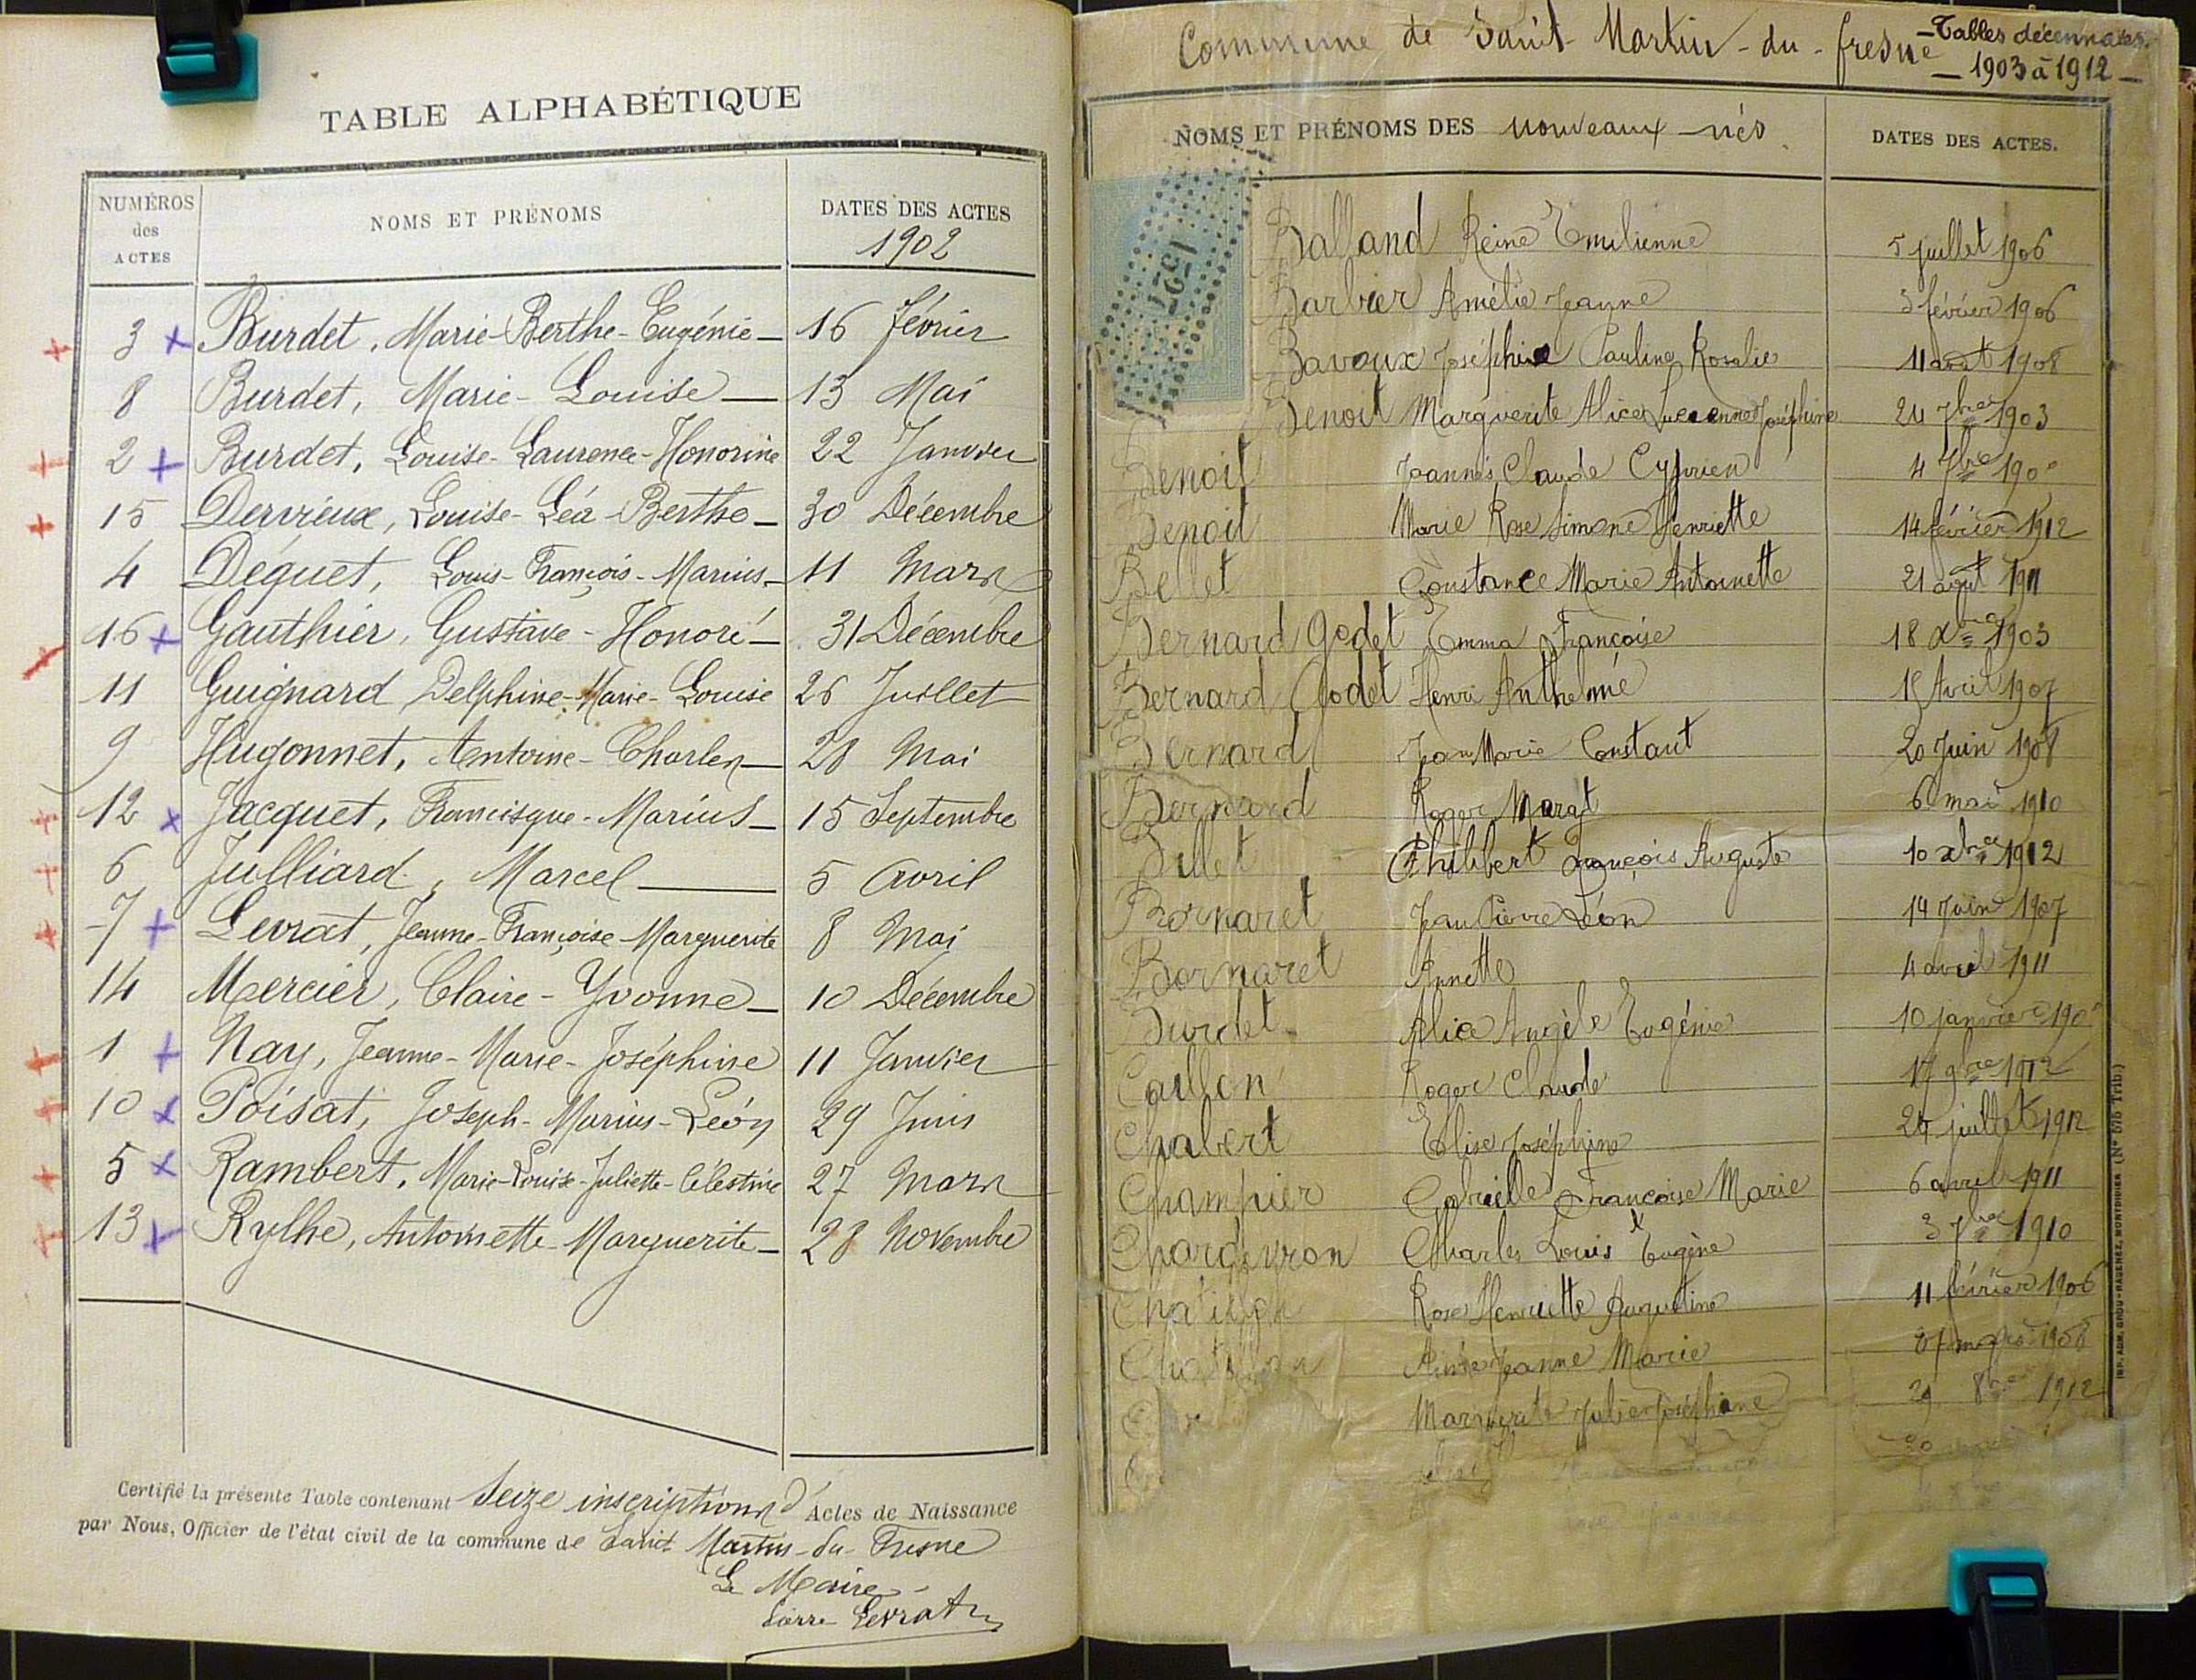 TABLE ALPHABÉTIQUE
NUMÉROS des ACTES
NOMS ET PRÉNOMS
DATES DES ACTES
1902
3 Burdet, Marie-Berthe-Eugénie 16 Février
8 Burdet, Marie-Louise 13 Mai
2 Burdet, Louise-Laurence-Honorine 22 Janvier
15 Dervieux, Louise-Léa-Berthe 30 Décembre
4 Déguet, Louis-François-Marius 11 Mars
16 Gauthier, Gustave-Honoré 31 Décembre
11 Guignard Delphine-Marie-Louise 26 Juillet
9 Hugonnet, Antoine-Charles 28 Mai
12 Jacquet, Francisque-Marius 15 Septembre
6 Julliard, Marcel 5 Avril
7 Levrat, Jeanne-Françoise-Marguerite 8 Mai
14 Mercier, Claire-Yvonne 10 Décembre
1 Nay, Jeanne-Marie-Joséphine 11 Janvier
10 Poisat, Joseph-Marius-Léon 29 Juin
5 Rambert, Marie-Louise-Juliette-Célestine 27 Mars
13 Rylhe, Antoinette-Marguerite 28 Novembre
Certifié la présente Table contenant Seize inscriptions d'Actes de Naissance
par Nous, Officier de l'état civil de la commune de Saint Martin-du-Fresne
Le Maire
Pierre Levrat
Commune de Saint-Martin-du-fresne
Tables décennales.
1903 à 1912
NOMS ET PRÉNOMS DES nouveaux-nés
DATES DES ACTES.
1527
Balland Reine Emilienne 5 juillet 1906
Barbier Amélie Jeanne 3 février 1906
Bavoux Joséphine Pauline Rosalie 11 août 1908
Benoit Marguerite Alice Lucienne Joséphine 24 7bre 1903
Benoit Joannès Claude Cyprien 4 7bre
Benoit Marie Rose Simone Henriette 14 février 1912
Bellet Constance Marie Antoinette 21 août 1911
Bernard Godet Emma Françoise 18 Xbre 1903
Bernard Godet Henri Anthelme Avril 1907
Bernard Jean Marie Constant 20 Juin 1908
Bernard Roger Margt 6 mai 1910
Billet Philibert François Auguste 10 xbre 1912
Bornaret Jean Pierre Léon 14 Juin 1907
Bornaret Annette 4 avril 1911
Burdet Alice Angèle Eugénie 10 janvier
Caillon Roger Claude 17 9bre 1912
Chabert Elise Joséphine juillet 1912
Champier Gabrielle Françoise Marie 6 avril 1911
Chardeyron Charles Louis Eugène 3 7bre 1910
Chatillon Rose Henriette Augustine 11 février 1906
Chatillon Jeanne Marie 1908
Marguerite Julie Joséphine 29 8bre 1912
30